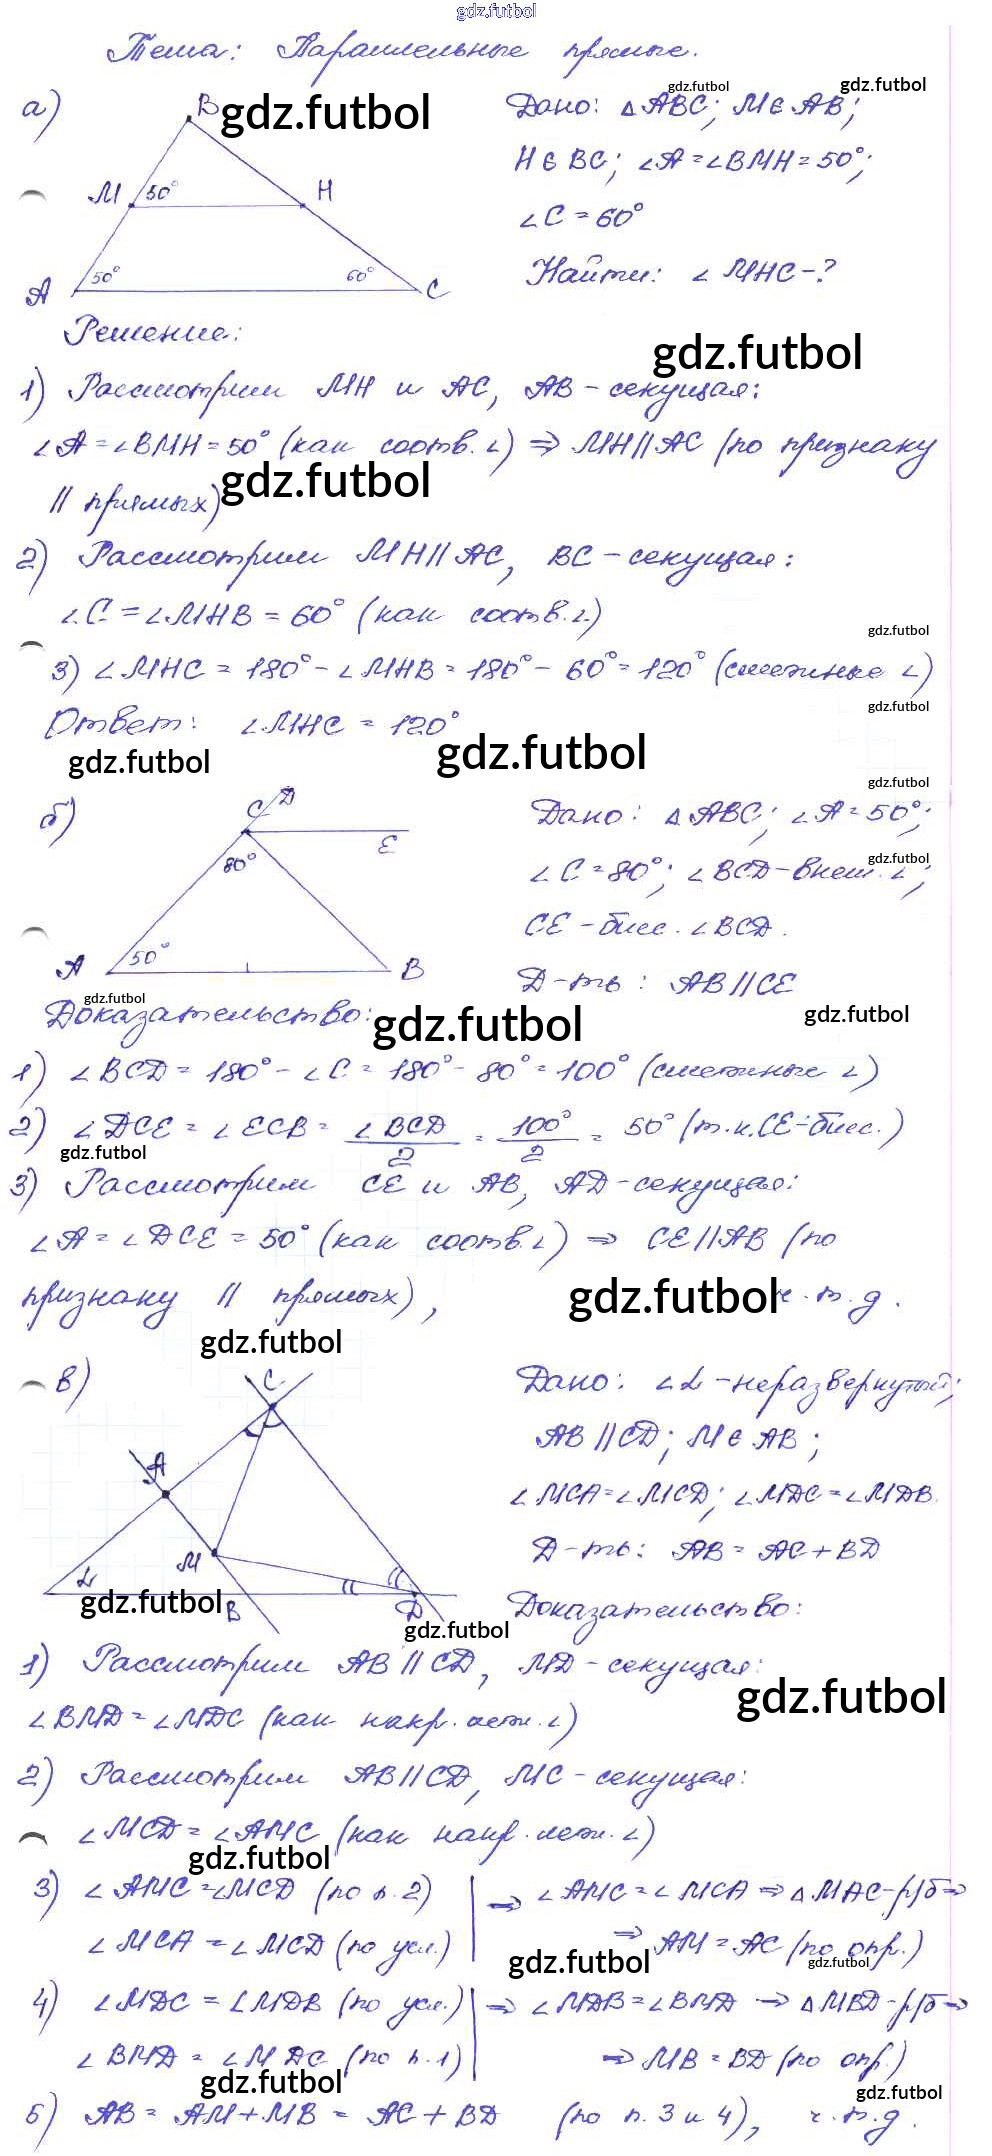 gdz.futbol
Тема: Параллельные прямые.
а)
B
gdz.futbol
M 50°
H
A 50° 60° C
gdz.futbol
gdz.futbol
Дано: △ABC; M∈AB;
H∈BC; ∠A=∠BMH=50°;
∠C=60°
Найти: ∠MHC-?
Решение:
gdz.futbol
1) Рассмотрим MH и AC, AB-секущая:
∠A=∠BMH=50° (как соотв.∠) ⇒ MH||AC (по признаку
gdz.futbol
|| прямых)
2) Рассмотрим MH||AC, BC-секущая:
∠C=∠MHB=60° (как соотв.∠)
gdz.futbol
3) ∠MHC=180°-∠MHB=180°-60°=120° (смежные ∠)
gdz.futbol
Ответ: ∠MHC=120°
gdz.futbol
gdz.futbol
gdz.futbol
б)
C D
80° E
A 50° B
Дано: △ABC; ∠A=50°;
gdz.futbol
∠C=80°; ∠BCD-внеш.∠;
CE-бисс.∠BCD.
Д-ть: AB||CE
gdz.futbol
gdz.futbol
Доказательство:
gdz.futbol
1) ∠BCD=180°-∠C=180°-80°=100° (смежные ∠)
2) ∠DCE=∠ECB=∠BCD/2=100°/2=50° (т.к.CE-бисс.)
gdz.futbol
3) Рассмотрим CE и AB, AD-секущая:
∠A=∠DCE=50° (как соотв.∠) ⇒ CE||AB (по
признаку || прямых), ч.т.д.
gdz.futbol
gdz.futbol
в)
C
A
M
L
B
D
gdz.futbol
gdz.futbol
Дано: ∠L-неразвернутый;
AB||CD; M∈AB;
∠MCA=∠MCD; ∠MDC=∠MDB.
Д-ть: AB=AC+BD
Доказательство:
1) Рассмотрим AB||CD, MD-секущая:
gdz.futbol
∠BMD=∠MDC (как накр.леж.∠)
2) Рассмотрим AB||CD, MC-секущая:
∠MCD=∠AMC (как накр.леж.∠)
gdz.futbol
3) ∠AMC=∠MCD (по п.2) | ⇒ ∠AMC=∠MCA ⇒ △MAC-р/б ⇒
∠MCA=∠MCD (по усл.) | ⇒ AM=AC (по опр.)
gdz.futbol
gdz.futbol
4) ∠MDC=∠MDB (по усл.) | ⇒ ∠MDB=∠BMD ⇒ △MBD-р/б ⇒
∠BMD=∠MDC (по п.1) | ⇒ MB=BD (по опр.)
gdz.futbol
gdz.futbol
5) AB=AM+MB=AC+BD (по п.3 и 4), ч.т.д.